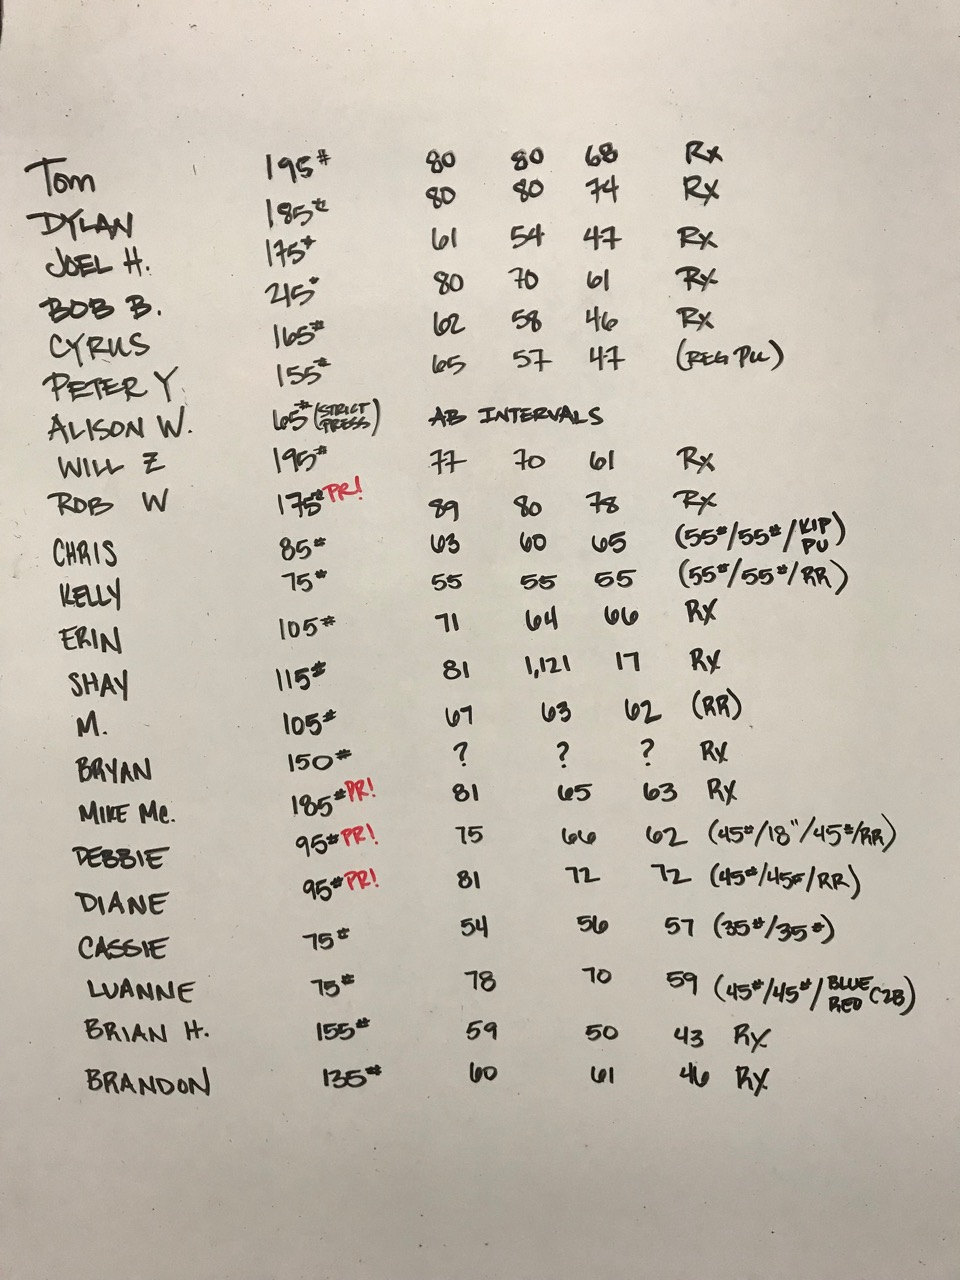 Tom 195# 80 80 68 Rx
DYLAN 185# 80 80 74 Rx
JOEL H. 175# 61 54 47 Rx
BOB B. 245# 80 70 61 Rx
CYRUS 165# 62 58 46 Rx
PETER Y 155# 65 57 47 (REG PU)
ALISON W. 65# (STRICT PRESS) AB INTERVALS
WILL Z 195# 77 70 61 Rx
ROB W 175# PR! 89 80 78 Rx
CHRIS 85# 63 60 65 (55#/55#/KIP PU)
KELLY 75# 55 55 55 (55#/55#/RR)
ERIN 105# 71 64 66 Rx
SHAY 115# 81 1,121 17 Rx
M. 105# 67 63 62 (RR)
BRYAN 150# ? ? ? Rx
MIKE Mc. 185# PR! 81 65 63 Rx
DEBBIE 95# PR! 75 66 62 (45#/18"/45#/RR)
DIANE 95# PR! 81 72 72 (45#/45#/RR)
CASSIE 75# 54 56 57 (35#/35#)
LUANNE 75# 78 70 59 (45#/45#/BLUE RED C2B)
BRIAN H. 155# 59 50 43 Rx
BRANDON 135# 60 61 46 Rx